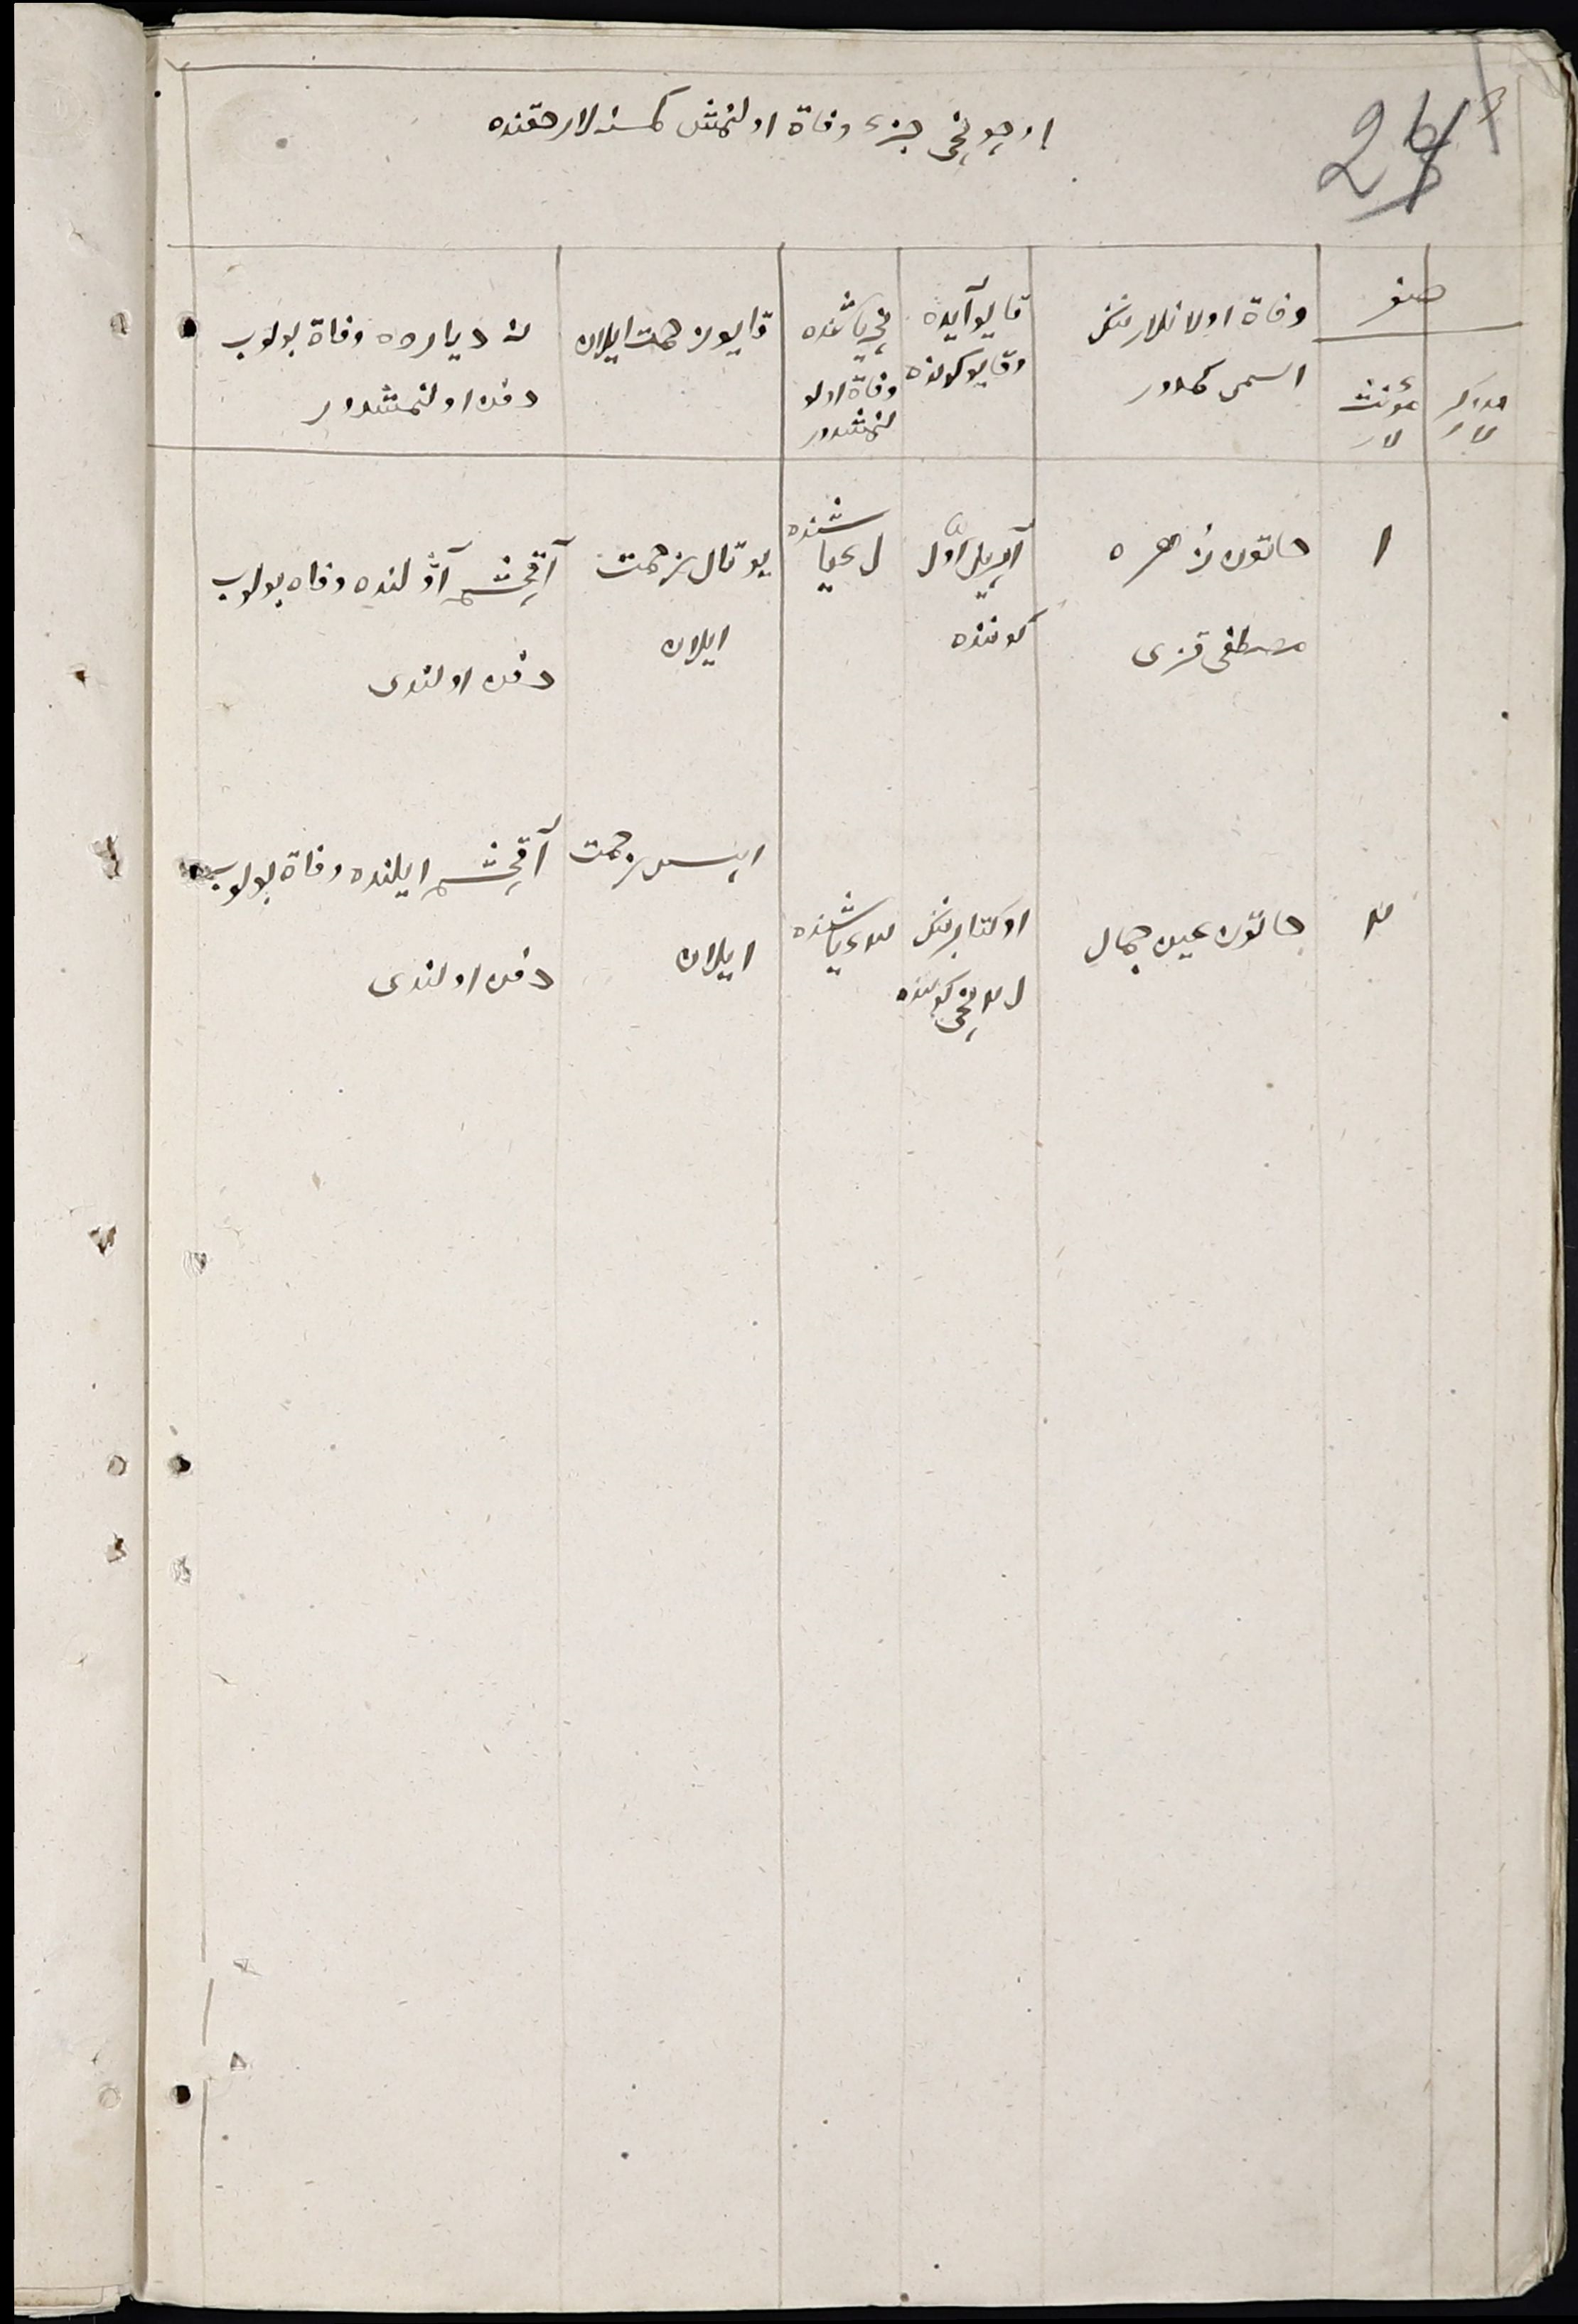 اوچونچی جزء وفاة اولنمش کمسنه لار حقنده
26
صنف
مذکر لار
مؤنث لار
وفاة اولانلارننک
اسمی کمدور
قایو آیده
وقایو کونده
نچی یاشنده
وفاة اولو
نمشدور
قایو زحمت ایلان
نه دیارده وفاة بولوب
دفن اولنمشدور
۱
خاتون زهره
مصطفی قزی
آپریل اول
کوننده
یاشنده
یوتال زحمت
ایلان
آقچشمه آولنده وفاه بولوب
دفن اولندی
۲
خاتون عین جمال
اوکتابرننک
نچی کوننده
یاشنده
زحمت
ایلان
آقچشمه ایلنده وفاة بولوب
دفن اولندی